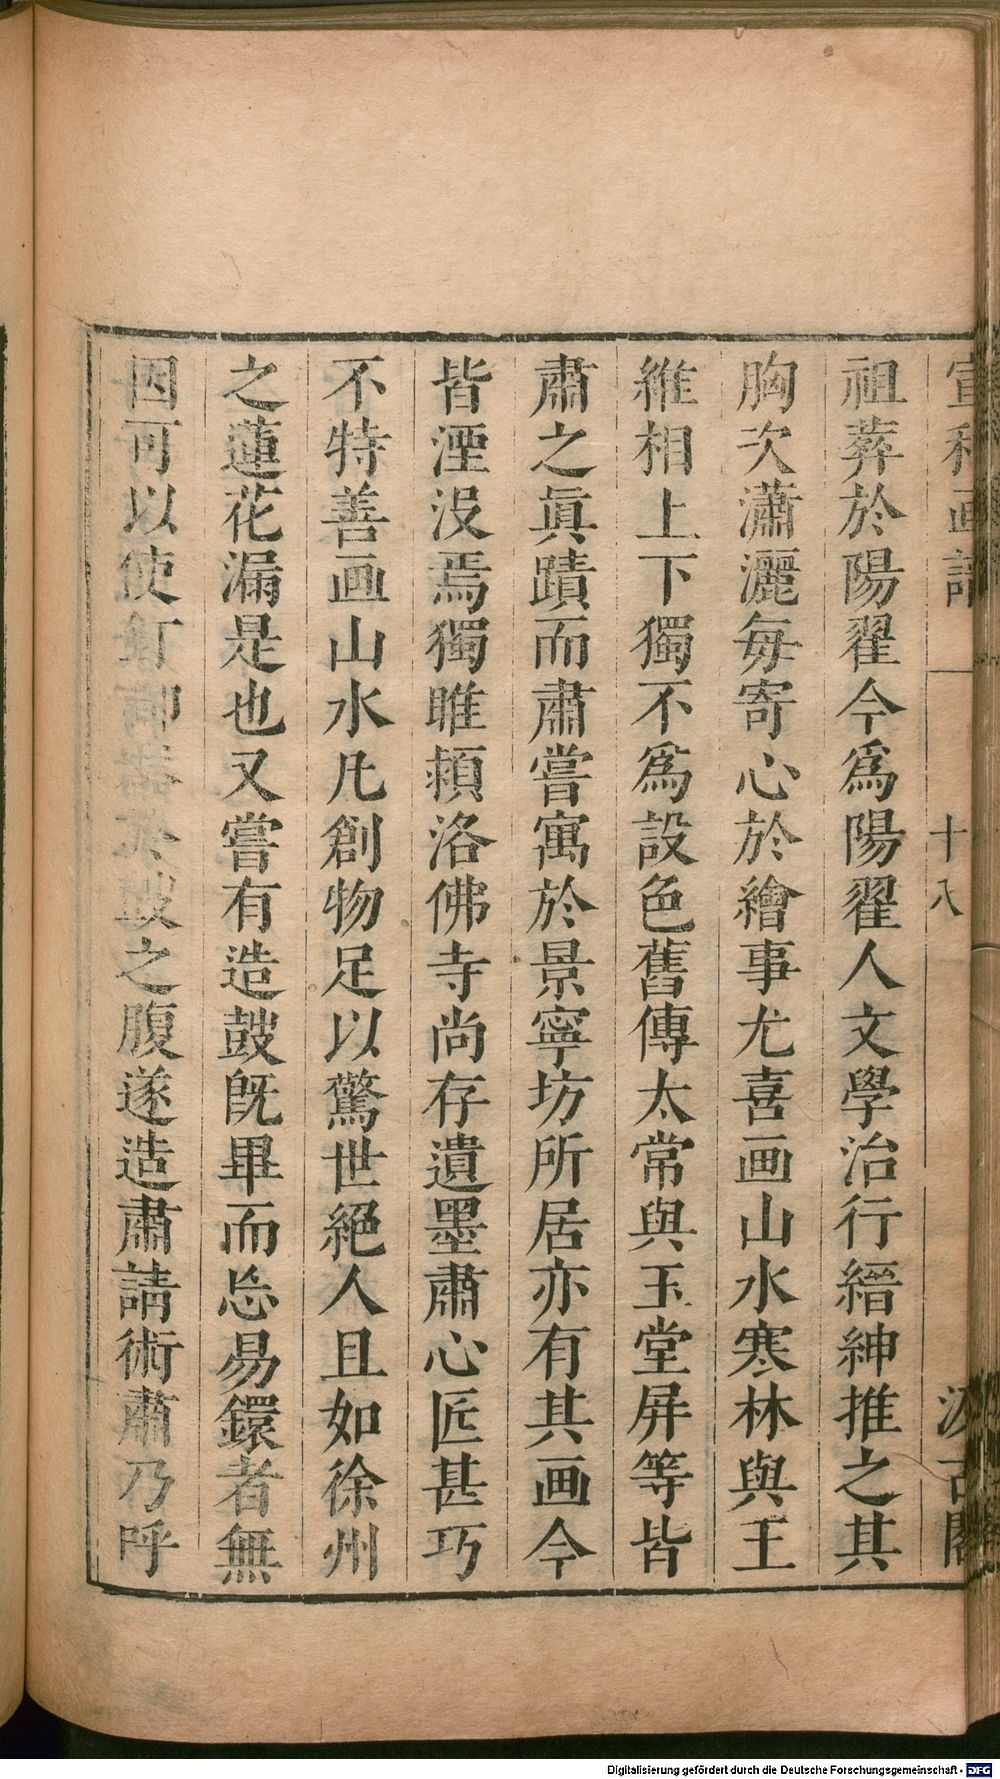 宣和画譜 十八 汲古閣
祖葬於陽翟今爲陽翟人文學治行縉紳推之其
胸次瀟灑每寄心於繪事尤喜画山水寒林與王
維相上下獨不爲設色舊傳太常與玉堂屏等皆
肅之眞蹟而肅嘗寓於景寧坊所居亦有其画今
皆湮没焉獨睢頴洛佛寺尚存遺墨肅心匠甚巧
不特善画山水凡創物足以驚世絕人且如徐州
之蓮花漏是也又嘗有造鼓旣畢而忘易鐶者無
因可以使釘 於鼓之腹遂造肅請術肅乃呼
Digitalisierung gefördert durch die Deutsche Forschungsgemeinschaft - DFG